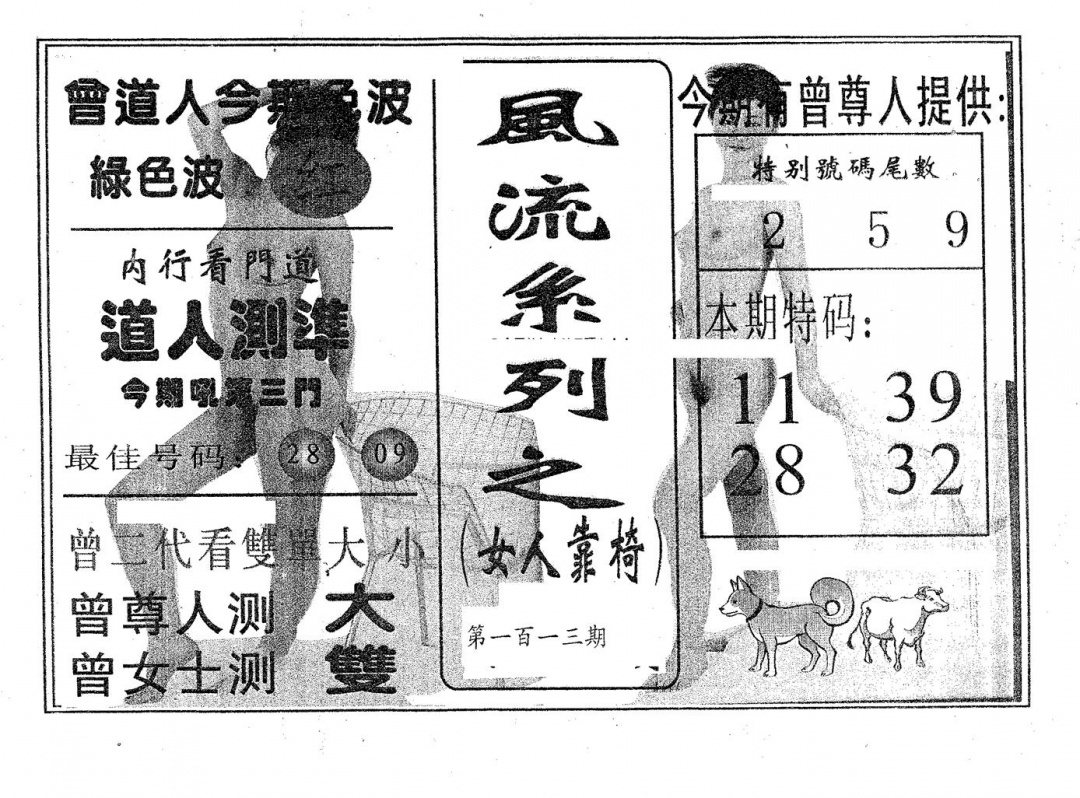 曾道人今期色波
綠色波
内行看門道
道人測準
今期吼準三門
最佳号码:
28 09
曾二代看雙單大小
曾尊人测 大
曾女士测 雙
風流系列之
(女人靠椅)
第一百一三期
今期有曾尊人提供:
特别號碼尾數
2 5 9
本期特码:
11 39
28 32